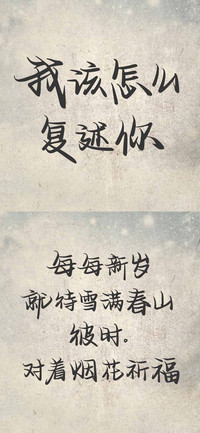 我该怎么
复述你
每每新岁
就待雪满春山
彼时。
对着烟花祈福